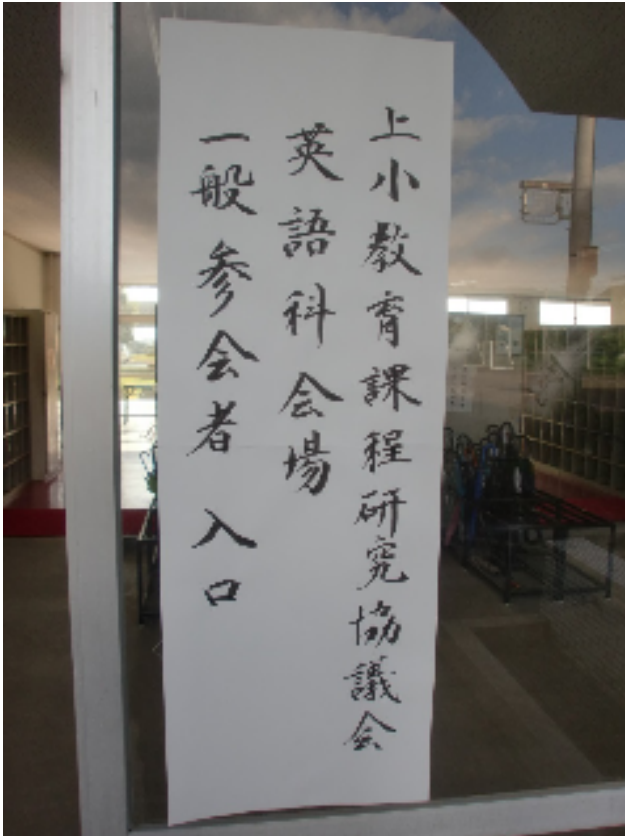 上小教育課程研究協議会
英語科会場
一般参会者 入口